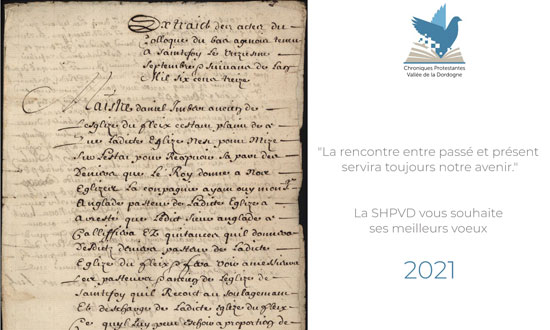 Extraict des actes du
Colloque du bas agenois tenu
a Saincte foy Le
Septembre & suivans de Lan
Mil six cens treize
Maistre daniel Imbert ancien de
Leglize du fleix cestant plainct de ce
que Ladicte Eglize
sur Lestat pour Recepvoir sa part des
Deniers que Le Roy donne a Nos
Eglizes La compagnie ayant ouy monsr
Anglade pasteur de Ladicte Eglize a
arresté que Ledict sieur anglade
Et quitances quil donnera
pasteur de Ladicte
Eglize du fleix
pasteur & antien de Leglize de
Saincte foy quil Recoit au soulagement
Et descharge de Ladicte Eglize du fleix
Ce quy Luy peut a proportion de
Chroniques Protestantes
Vallée de la Dordogne
"La rencontre entre passé et présent
servira toujours notre avenir."
La SHPVD vous souhaite
ses meilleurs voeux
2021